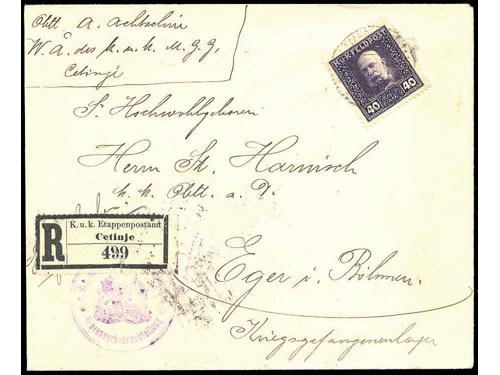 Oblt A. Achtschin
W. A. des k. u. k. M. G. G.
Cetinje
K.U.K. FELDPOST
40 40
Sr Hochwohlgeboren
Herrn St. Harnisch
k. k. Oblt. a. D.
K. u. k. Etappenpostamt
R Cetinje
499
Eger i. Böhmen.
Kriegsgefangenenlager